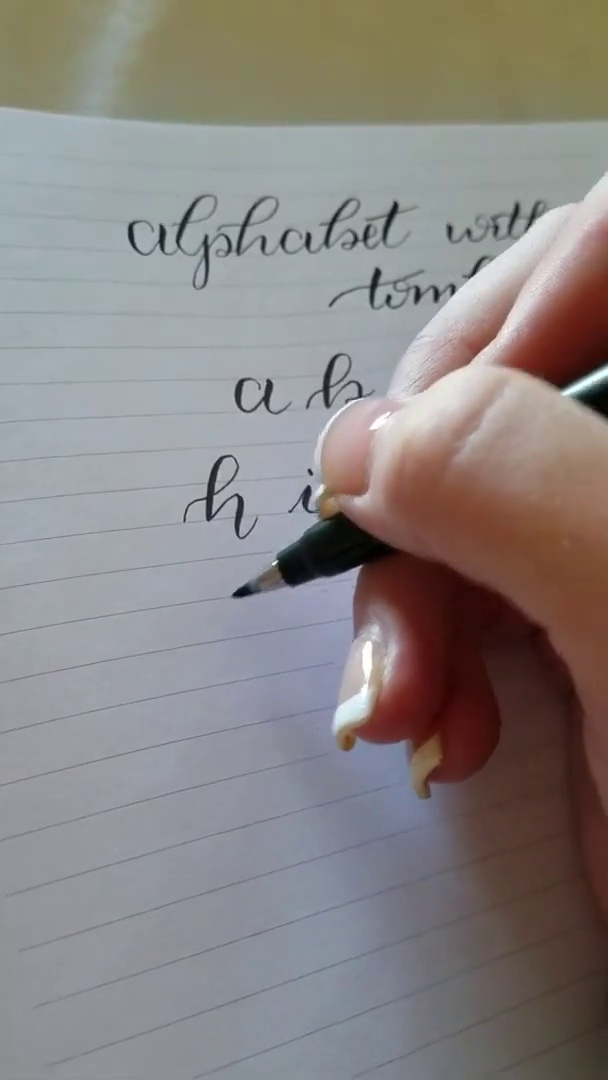 alphabet with
a b
h i